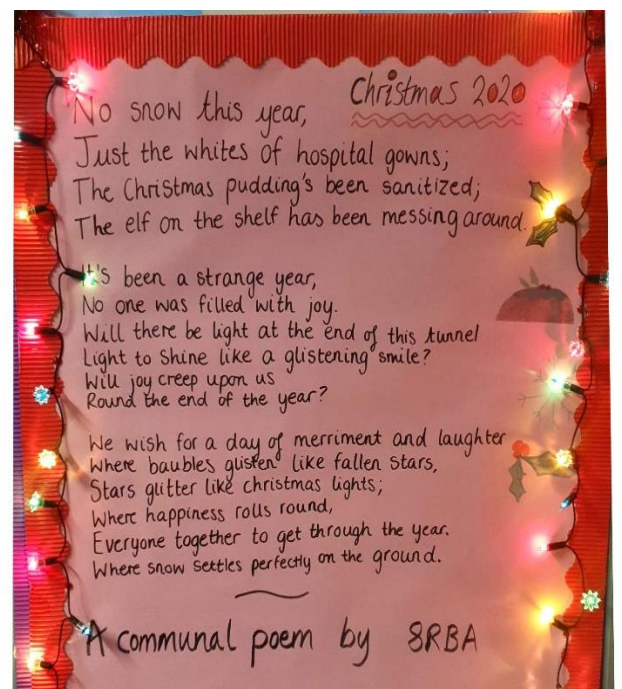 Christmas 2020
No snow this year,
Just the whites of hospital gowns;
The Christmas pudding's been sanitized;
The elf on the shelf has been messing around.
It's been a strange year,
No one was filled with joy.
Will there be light at the end of this tunnel
Light to shine like a glistening smile?
Will joy creep upon us
Round the end of the year?
We wish for a day of merriment and laughter
Where baubles glisten like fallen stars,
Stars glitter like christmas lights;
Where happiness rolls round,
Everyone together to get through the year.
Where snow settles perfectly on the ground.
A communal poem by 8RBA